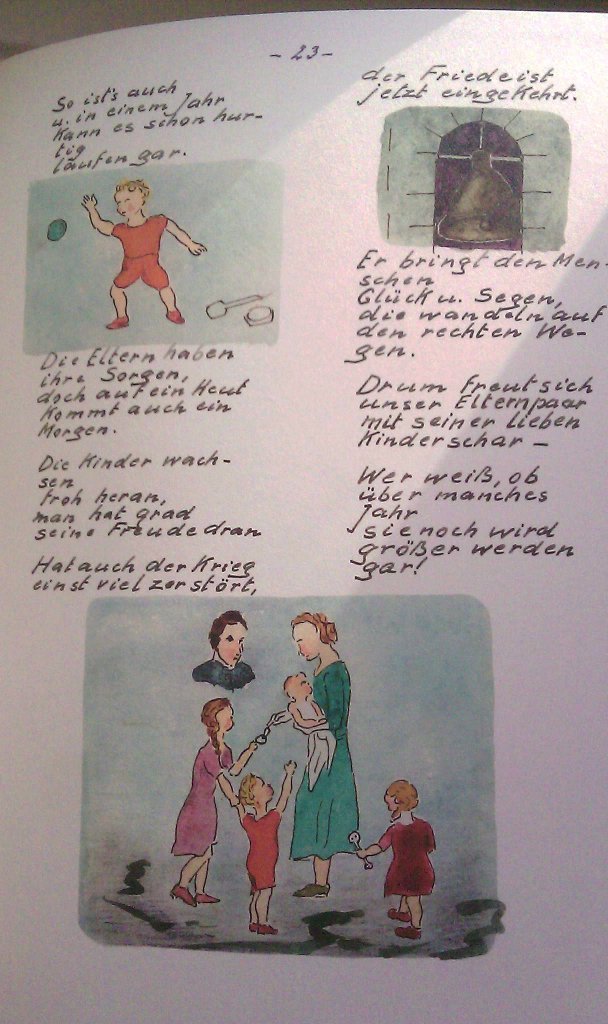 - 23 -
So ist's auch
u. in einem Jahr
kann es schon hur-
tig
laufen gar.
Die Eltern haben
ihre Sorgen,
doch auf ein Heut
kommt auch ein
Morgen.
Die Kinder wach-
sen
froh heran,
man hat grad
seine Freude dran
Hat auch der Krieg
einst viel zerstört,
der Friede ist
jetzt eingekehrt.
Er bringt den Men-
schen
Glück u. Segen,
die wandeln auf
den rechten We-
gen.
Drum freut sich
unser Elternpaar
mit seiner lieben
Kinderschar -
Wer weiß, ob
über manches
Jahr
sie noch wird
größer werden
gar!